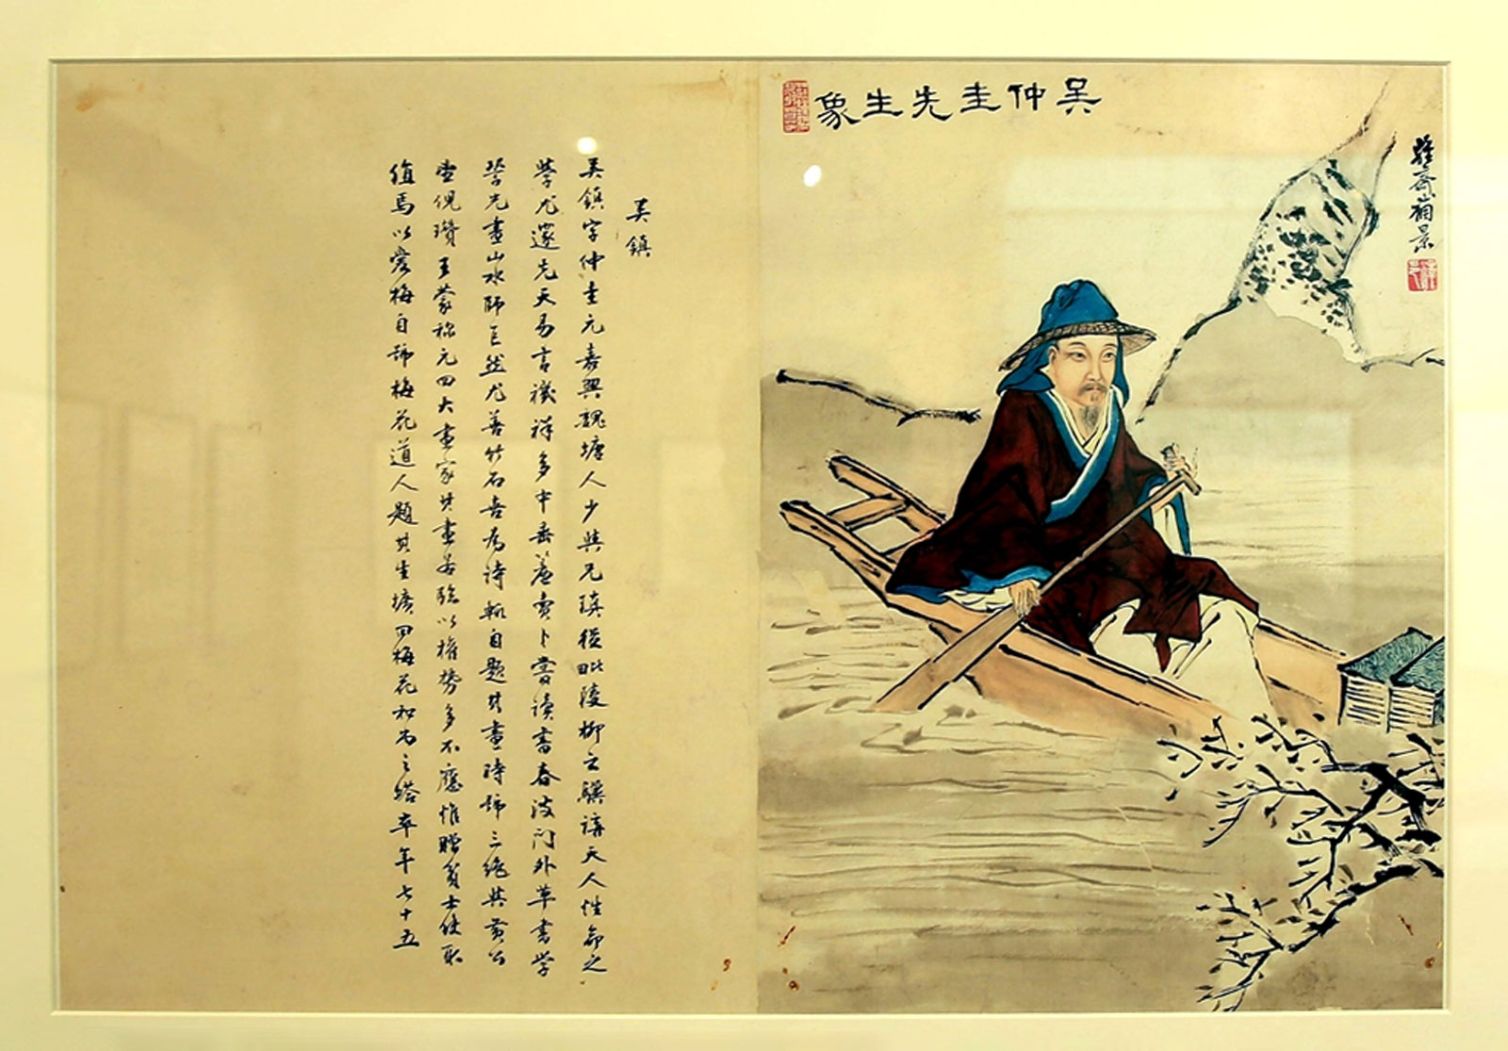 吴仲圭先生象
補景
吴鎮
吴鎮字仲圭元嘉興魏塘人少與兄瑱從毗陵柳天驥講天人性命之
學尤邃先天易言禨祥多中垂簾賣卜嘗讀書春波門外草書學
鞏光畫山水師巨然尤善竹石喜為詩輒自題其畫時號三絶其黄公
望倪瓚王蒙称元四大畫家其畫若臨以權勢多不應惟贈貧士使取
值焉以愛梅自號梅花道人題其生壙曰梅花和尚之塔卒年七十五